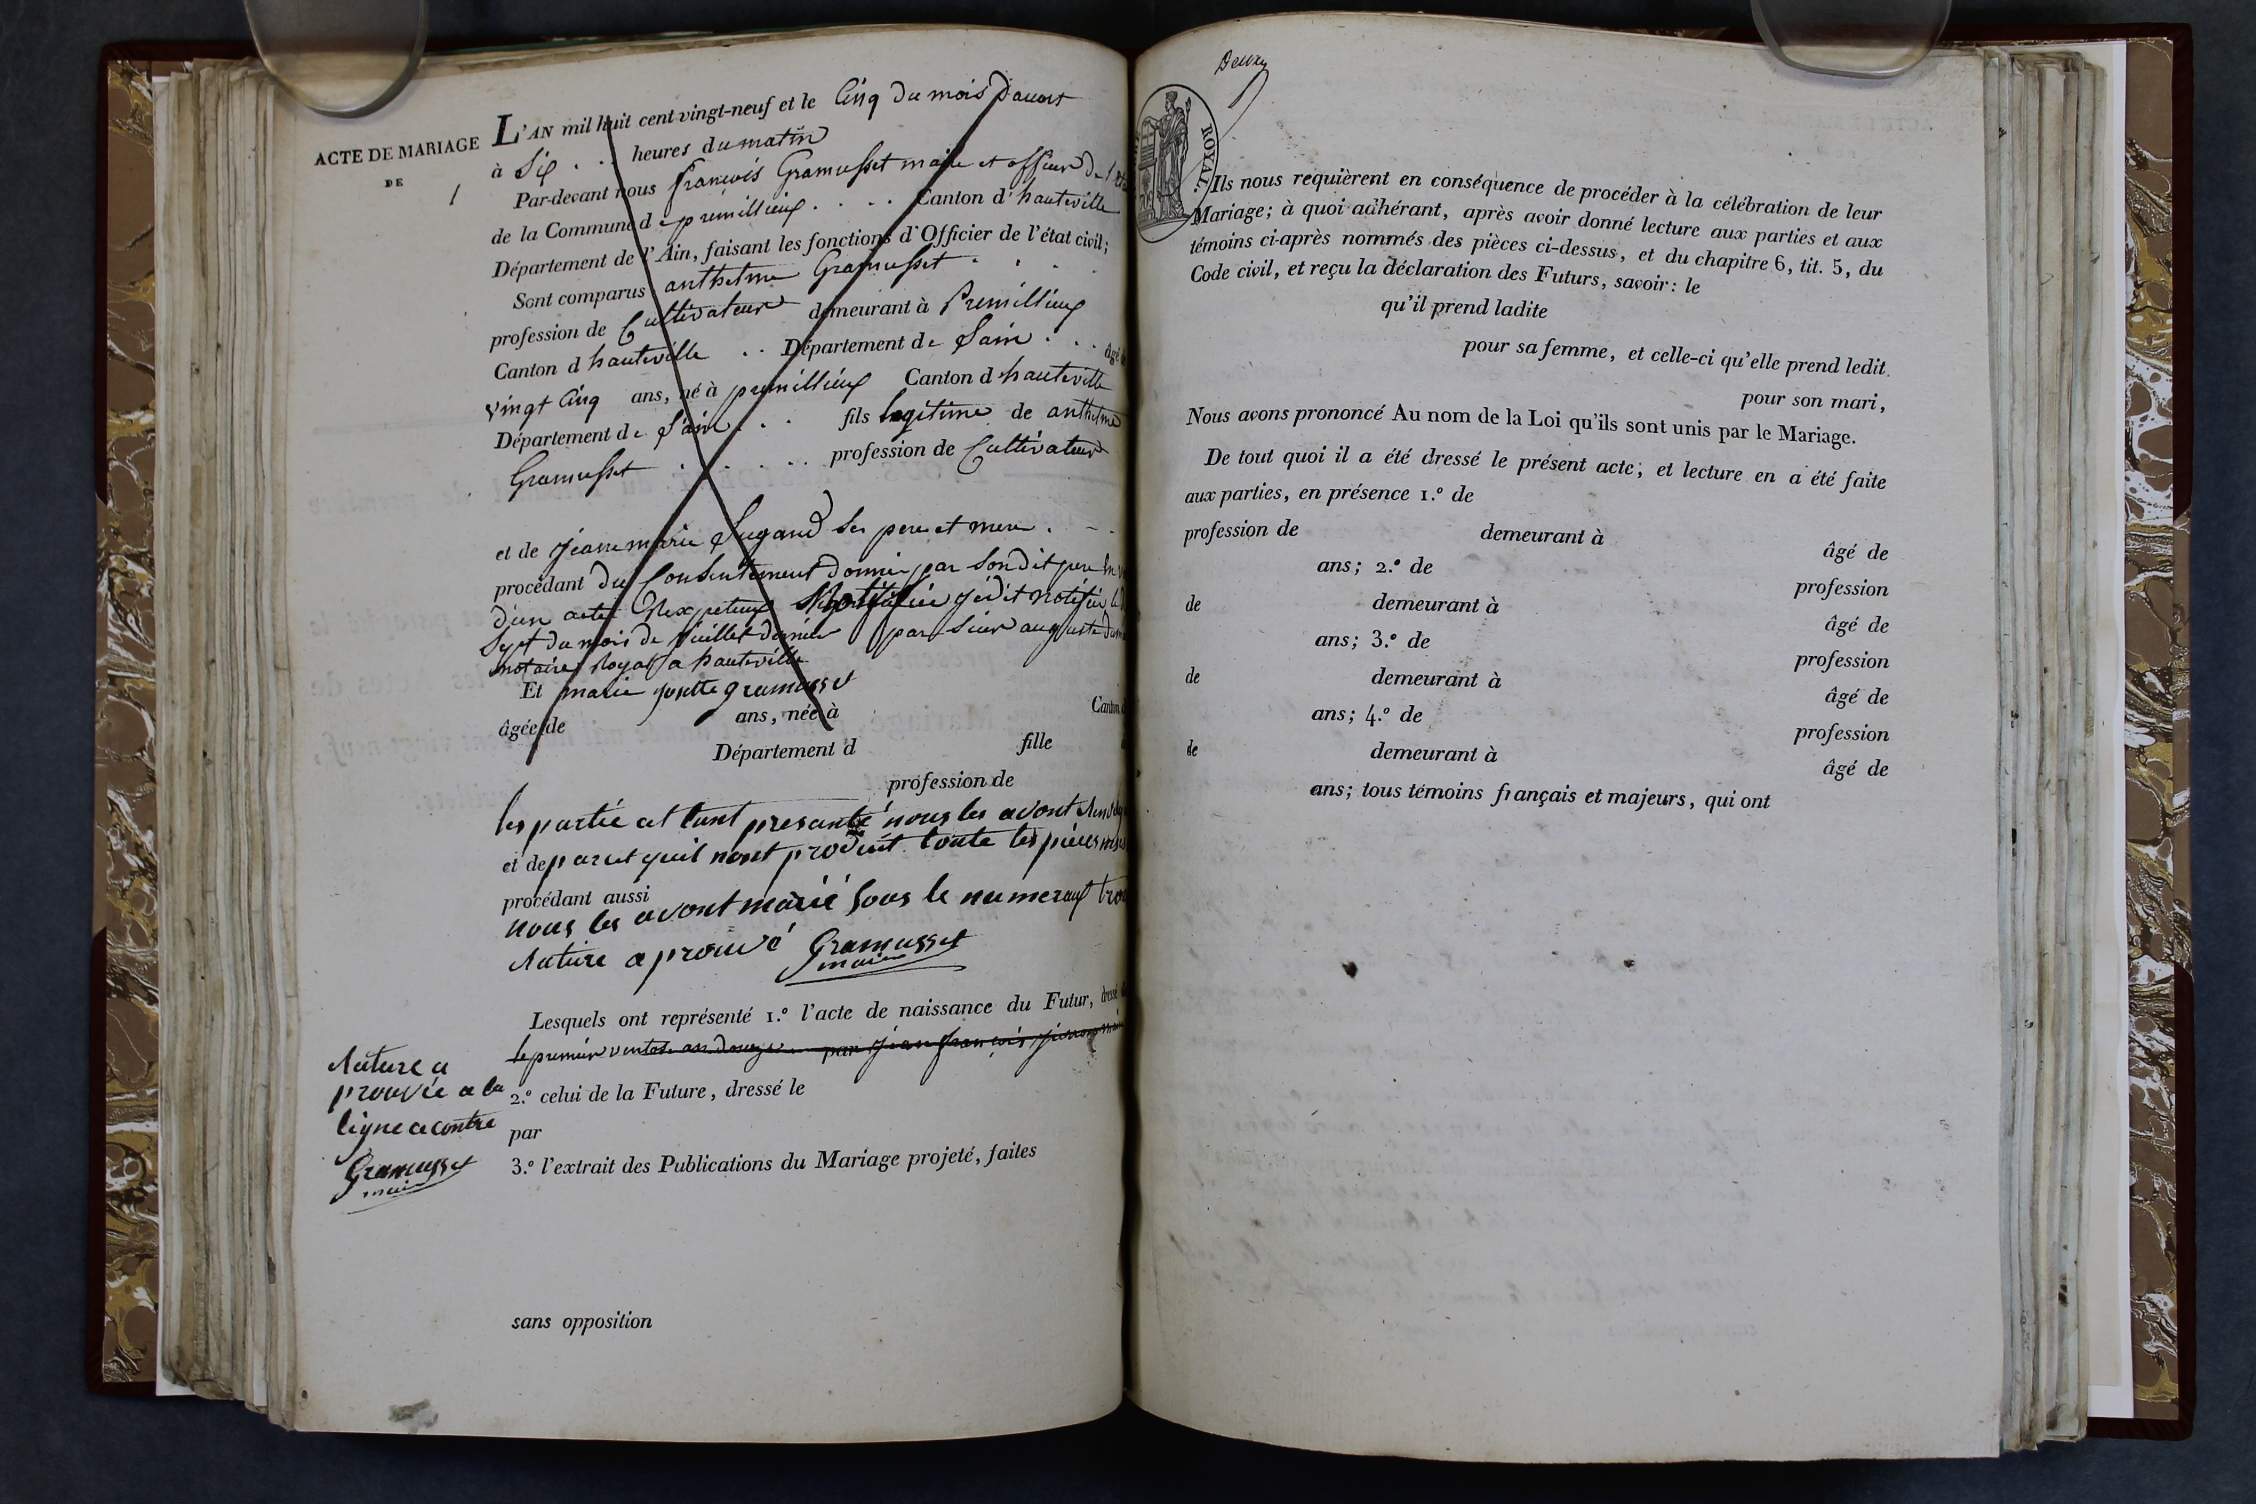 ACTE DE MARIAGE
DE
1
L'AN mil huit cent vingt-neuf et le Cinq du mois d'aoust
à Six . . . heures du matin
Par-devant nous françois Gramusset maire et officier de
de la Commune de premillieux . . . . Canton d'hauteville
Département de l'Ain, faisant les fonctions d'Officier de l'état civil;
Sont comparus anthelme Gramusset . . . .
profession de Cultivateur demeurant à Premillieux
Canton d hauteville . . Département de Lain . . . âgé
vingt Cinq ans, né à premillieux Canton d hauteville
Département de Lain . . . fils legitime de anthelme
Gramusset . . . . . profession de Cultivateur
et de jeanne marie Lugand ses pere et mere . - .
procédant du Consentement donnée par Son dit pere
d'un acte Respectueux notifiée
Sept du mois de juillet dernier par Sieur auguste
notaire Royal a hauteville
Et marie josette gramusset
âgée de ans, née à Canton
Département d fille
profession de
les partie et tant presanté nous les avont
et de parcet quil nont produit toute les pièces
procédant aussi
nous les avont marié sous le numeraux
Rature aprouvé Gramusset
maire
Lesquels ont représenté 1.° l'acte de naissance du Futur, dressé
le premier ventose an douze par jean françois
2.° celui de la Future, dressé le
par
3.° l'extrait des Publications du Mariage projeté, faites
sans opposition
Rature a
prouvée a la
ligne cicontre
Gramusset
maire
Deuxg
ROYAL.
Ils nous requièrent en conséquence de procéder à la célébration de leur
Mariage; à quoi adhérant, après avoir donné lecture aux parties et aux
témoins ci-après nommés des pièces ci-dessus, et du chapitre 6, tit. 5, du
Code civil, et reçu la déclaration des Futurs, savoir: le
qu'il prend ladite
pour sa femme, et celle-ci qu'elle prend ledit
pour son mari,
Nous avons prononcé Au nom de la Loi qu'ils sont unis par le Mariage.
De tout quoi il a été dressé le présent acte, et lecture en a été faite
aux parties, en présence 1.° de
profession de demeurant à âgé de
ans; 2.° de profession
de demeurant à âgé de
ans; 3.° de profession
de demeurant à âgé de
ans; 4.° de profession
de demeurant à âgé de
ans; tous témoins français et majeurs, qui ont